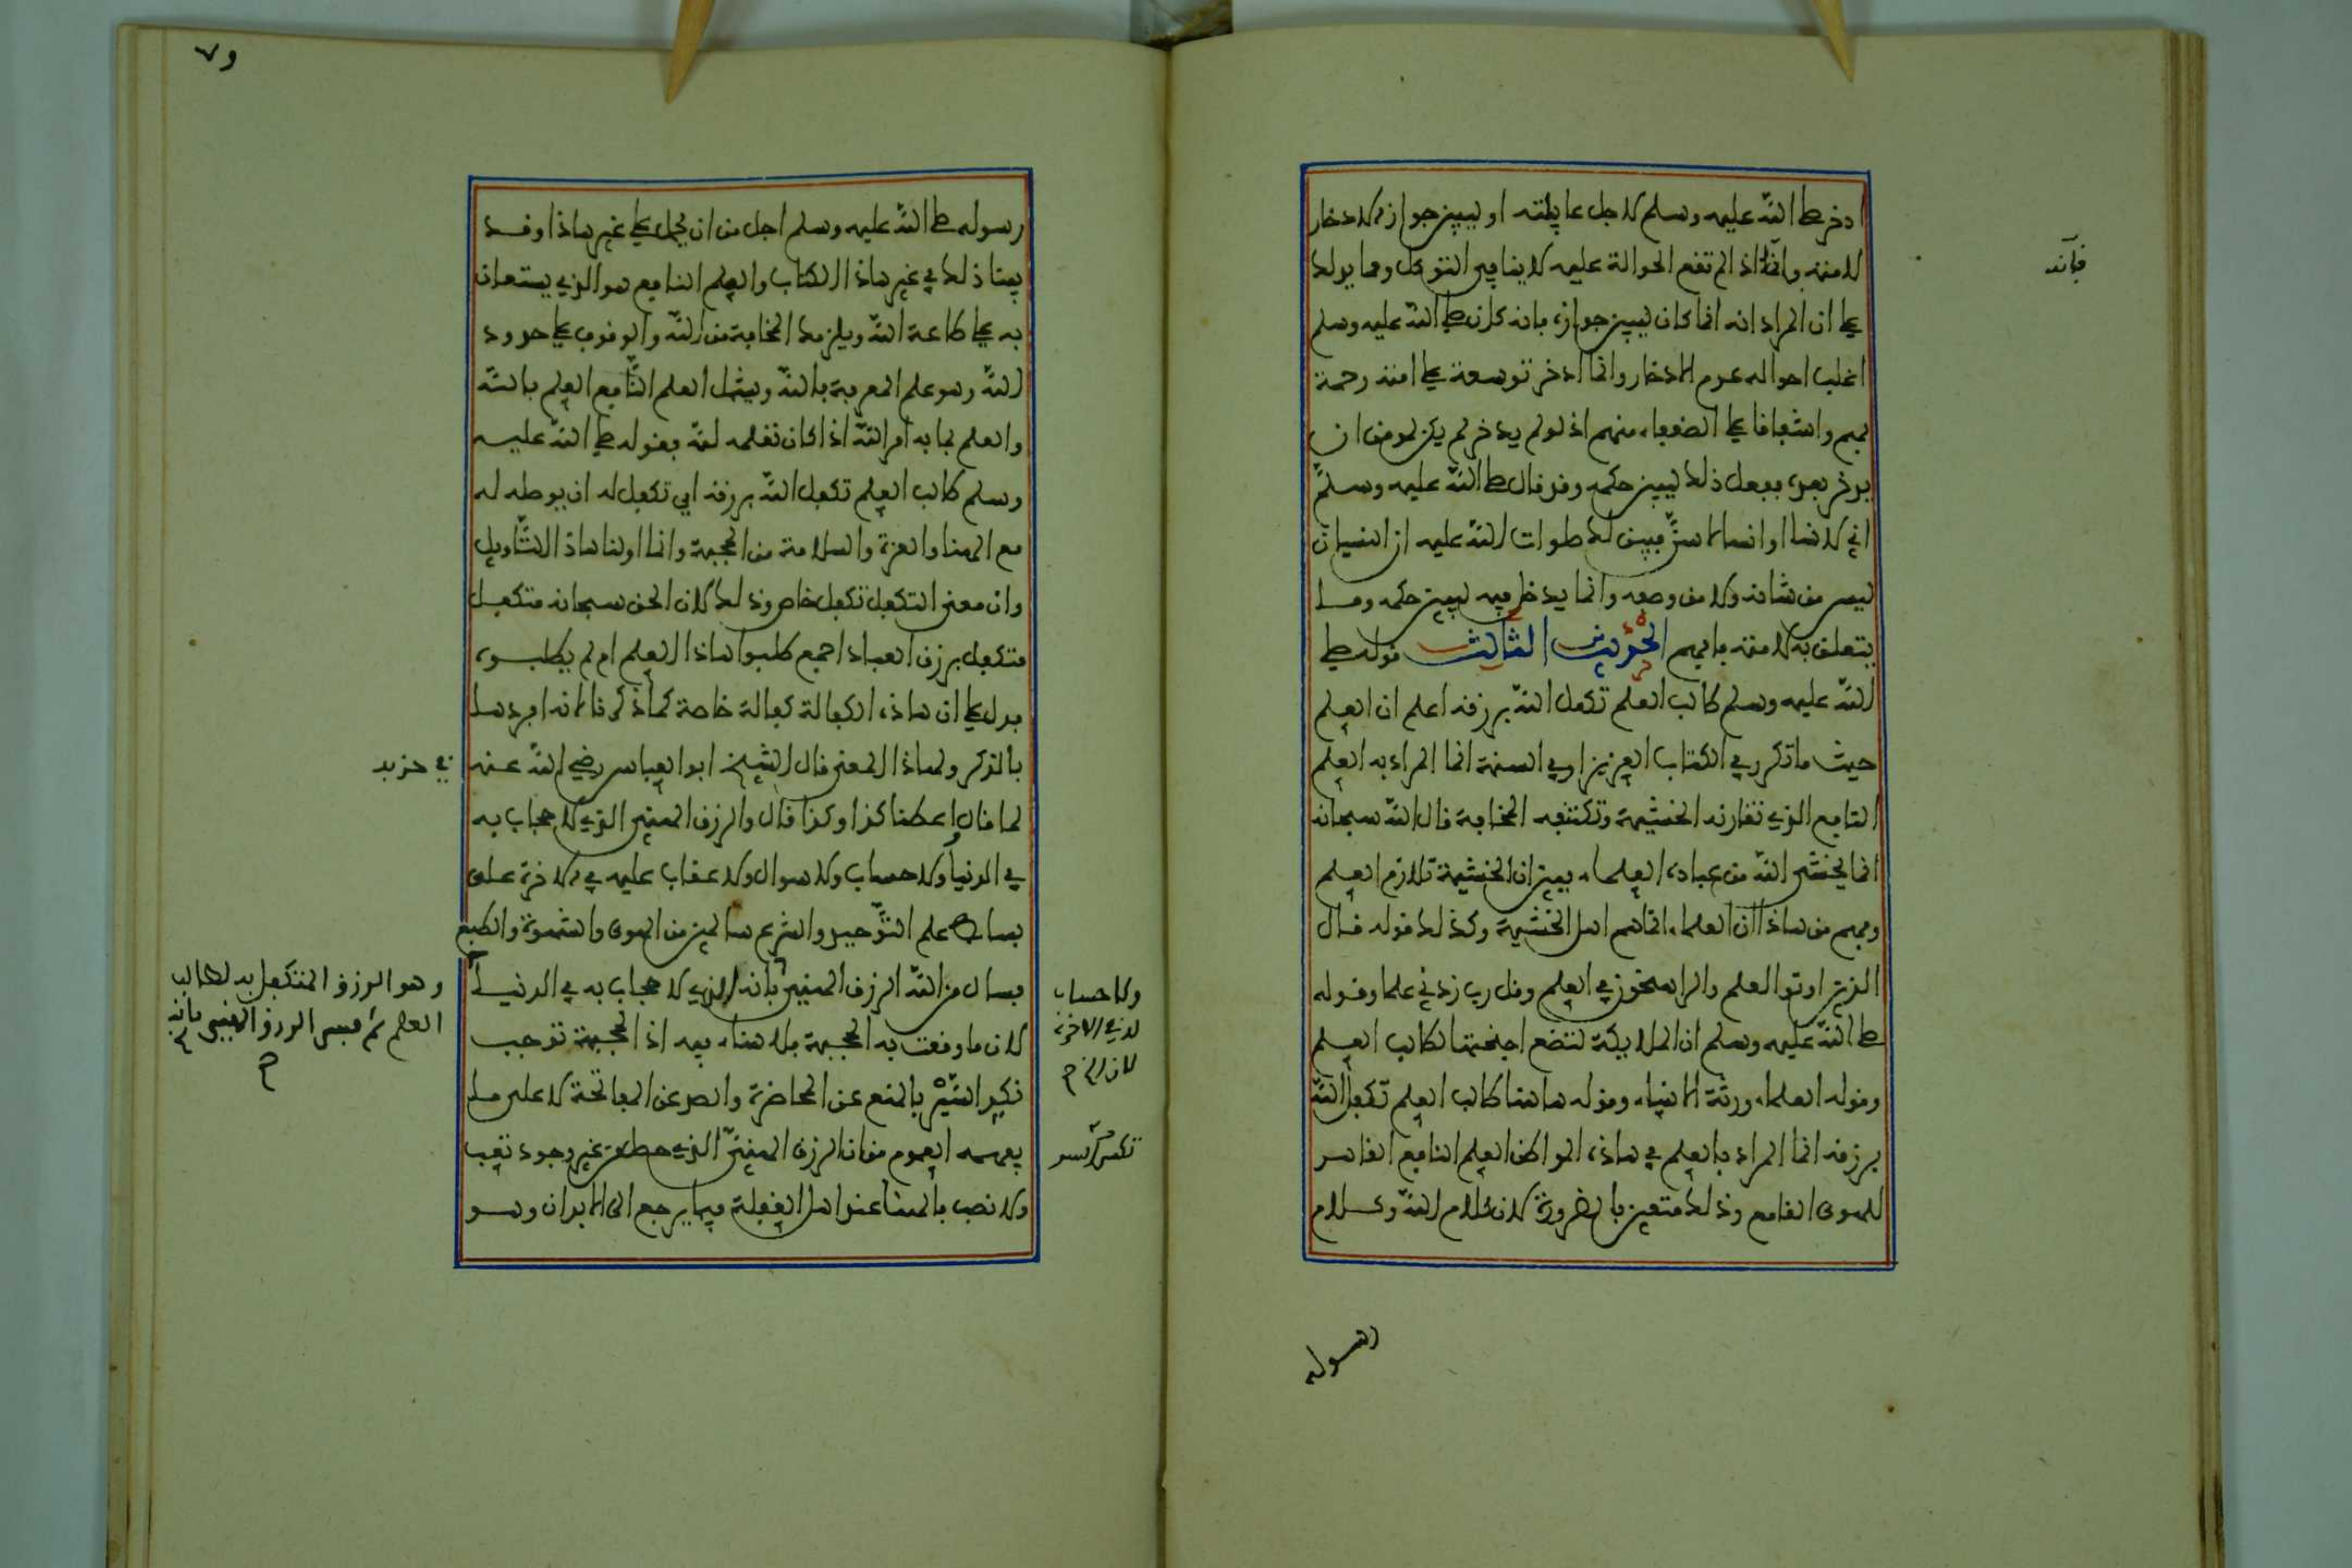 ادخر صلى الله عليه وسلم لاجل عايلته او ليبين جواز الادخار
لامته وانه اذا لم تقع الحوالة عليه لا ينافي التوكل ومما يدلك
على ان المراد انه انما كان ليبين جوازه بانه كان صلى الله عليه وسلم
اغلب احواله عدم الادخار وانما ادخر توسعة على امته رحمة
بهم واشفاقا على الضعفاء منهم اذ لو لم يدخر لم يكن لمومن ان
يدخر بعده ففعل ذلك ليبين حكمه وقد قال صلى الله عليه وسلم
اني لانسا او انسا لاسن فبين لك صلوات الله عليه ان النسيان
ليس من شانه ولا من وصفه وانما يدخل فيه ليبين حكمه وما
يتعلق به لامته فافهم الحديث الثالث قوله صلى
الله عليه وسلم طالب العلم تكفل الله برزقه اعلم ان العلم
حيث ما تكرر في الكتاب العزيز او في السنة انما المراد به العلم
النافع الذي تقارنه الخشية وتكتنفه المخافة قال الله سبحانه
انما يخشى الله من عباده العلماء فبين ان الخشية تلازم العلم
وفهم من هاذا ان العلماء انما هم اهل الخشية وكذلك قوله قال
الذين اوتوا العلم والراسخون في العلم وقل رب زدني علما وقوله
صلى الله عليه وسلم ان الملايكة لتضع اجنحتها لطالب العلم
وقوله العلماء ورثة الانبياء وقوله هاهنا طالب العلم تكفل الله
برزقه انما المراد بالعلم في هاذه المواطن العلم النافع القاهر
للهوى القامع وذلك متعين بالضرورة لان كلام الله وكلام
رسوله
فائدة
٧٩
رسوله صلى الله عليه وسلم اجل من ان يحمل على غير هاذا وقد
بينا ذلك في غير هاذا الكتاب والعلم النافع هو الذي يستعان
به على طاعة الله ويلزمك المخافة من الله والوقوف على حدود
الله وهو علم المعرفة بالله ويشمل العلم النافع العلم بالله
والعلم بما به امر الله اذا كان تعلمه لله فقوله صلى الله عليه
وسلم طالب العلم تكفل الله برزقه اي تكفل له ان يوصله له
مع الهنا والعزة والسلامة من الحجبة وانما اولنا هاذا التاويل
وان معنى التكفل تكفل خاص وذلك لان الحق سبحانه متكفل
متكفل برزق العباد اجمع طلبوا هاذا العلم ام لم يطلبوه
فدل على ان هاذه الكفالة كفالة خاصة كما ذكرنا لانه افردها
بالذكر ولهاذا المعنى قال الشيخ ابو العباس رضي الله عنه
لما قال واعطنا كذا وكذا قال والرزق الهني الذي لا حجاب به
في الدنيا ولا حساب ولا سوال ولا عقاب عليه في الاخرة على
بساط علم التوحيد والشرع سالمين من الهوى والشهوة والطبع
فسال من الله الرزق الهني فانه الذي لا حجاب به في الدنيا
لان ما وقعت به الحجبة فلا هناء فيه اذ الحجبة توجب
بالمنع عن المحاضرة والصد عن المفاتحة لا على ما
يفهمه العموم من ان الرزق الهني الذي حصل من غير وجود تعب
ولا نصب فالهنا عند اهل الغفلة فيما يرجع الى الابدان وهو
في حزبه
وهو الرزق المتكفل به لطالب
العلم ثم فسر الرزق الهني بانه
ولا حساب